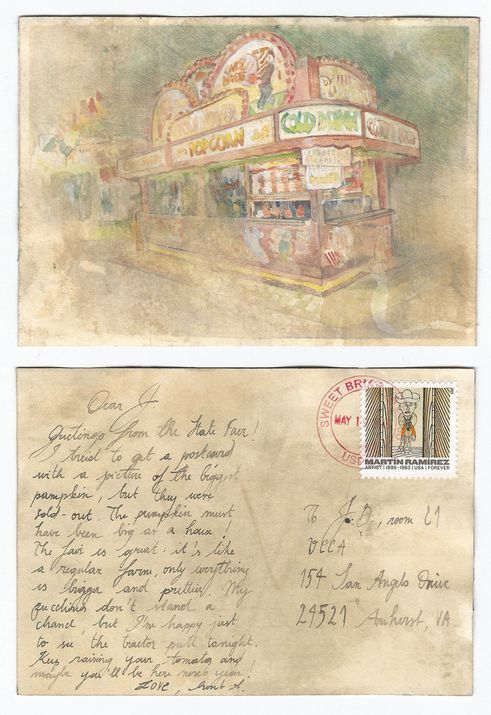 POPCORN
COLD DRINK
Dear J.
Greetings from the State Fair!
I tried to get a postcard
with a picture of the biggest
pumpkin, but they were
sold-out. The pumpkin must
have been big as a house!
The fair is great: it's like
a regular Farm, only everything
is bigger and prettier. My
zucchinis don't stand a
chand, but I'm happy just
to see the tractor pull tonight.
Keep raising your tomatos and
maybe you'll be here next year!
LOVE, Aunt A.
SWEET BR
MAY 1
US
MARTÍN RAMÍREZ
ARTIST | 1895-1963 | USA | FOREVER
To J.D., room 21
VCCA
154 San Angelo Drive
24521 Amherst, VA